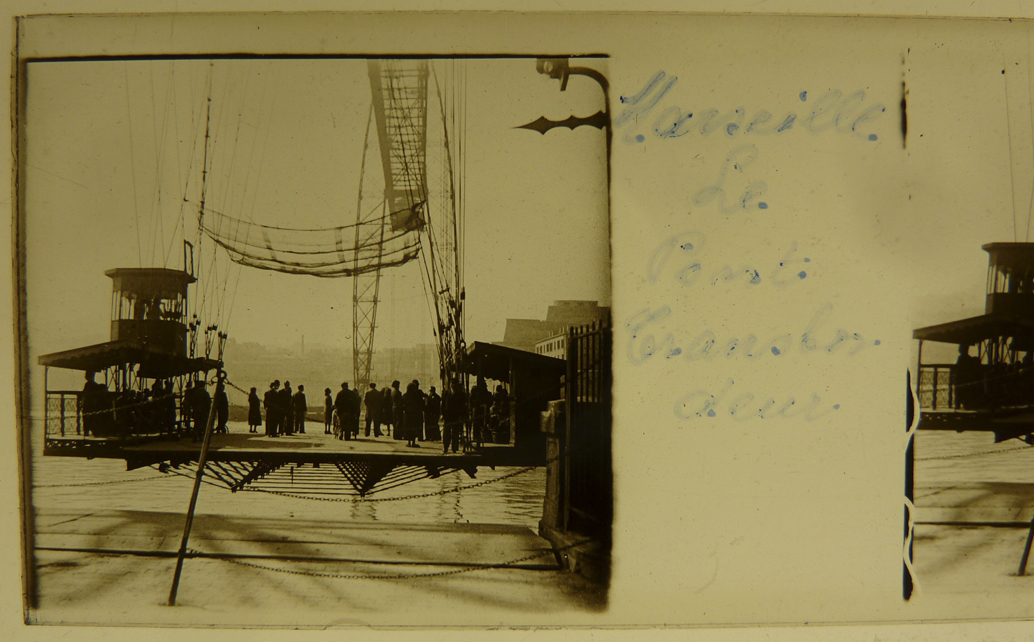 Marseille
Le
Pont
Transbor
deur